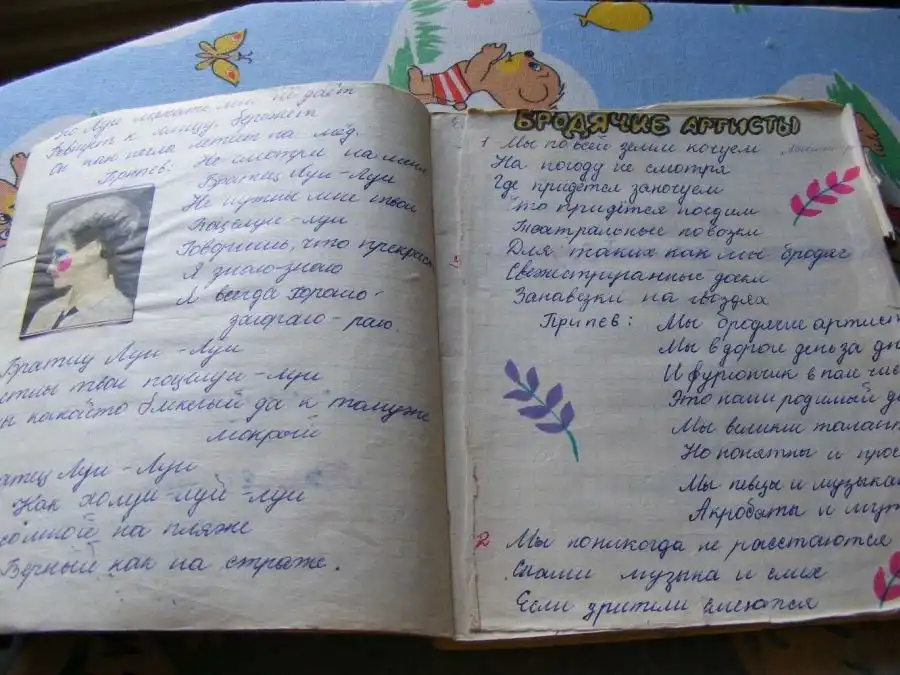 Но Луи
Говорит к лицу, бережёт
Он как пчела летит на мёд.
Припев: Не смотри на меня
Братец Луи-Луи
Не нужны мне твои
Поцелуи-луи
Говоришь, что прекрасн
Я знаю-знаю
Я всегда хорошо-
загораю-раю.
Братец Луи-Луи
твои поцелуи-луи
какойто да к томуже
мокрый
атец Луи-Луи
Как холуи-луй-луи
со мной на пляже
Верный как на страже.
БРОДЯЧИЕ АРТИСТЫ
1 Мы по всей земли кочуем
На погоду не смотря
Где придётся заночуем
Что придётся поедим
Театральные повозки
Для таких как мы бродяг
Свежеструганные доски
Занавезки на гвоздях
Припев: Мы бродячие артист
Мы в дороге день за дн
И фургончик в пол чис
Это наш родимый д
Мы великие талант
Но понятны и прос
Мы певцы и музыка
Акробаты и шут
2 Мы поникогда не расстаются
Снами музыка и смех
Если зрители смеются